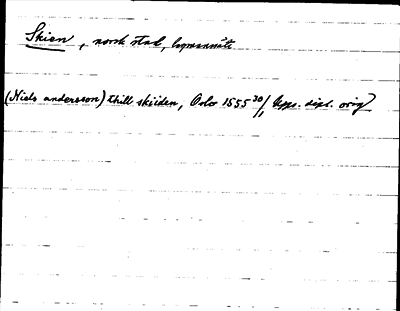 Skien, norsk stad, bymannäte
(Niels andersson) thill skiiden, Oslo 1555 30/1 Upps. dipl. orig